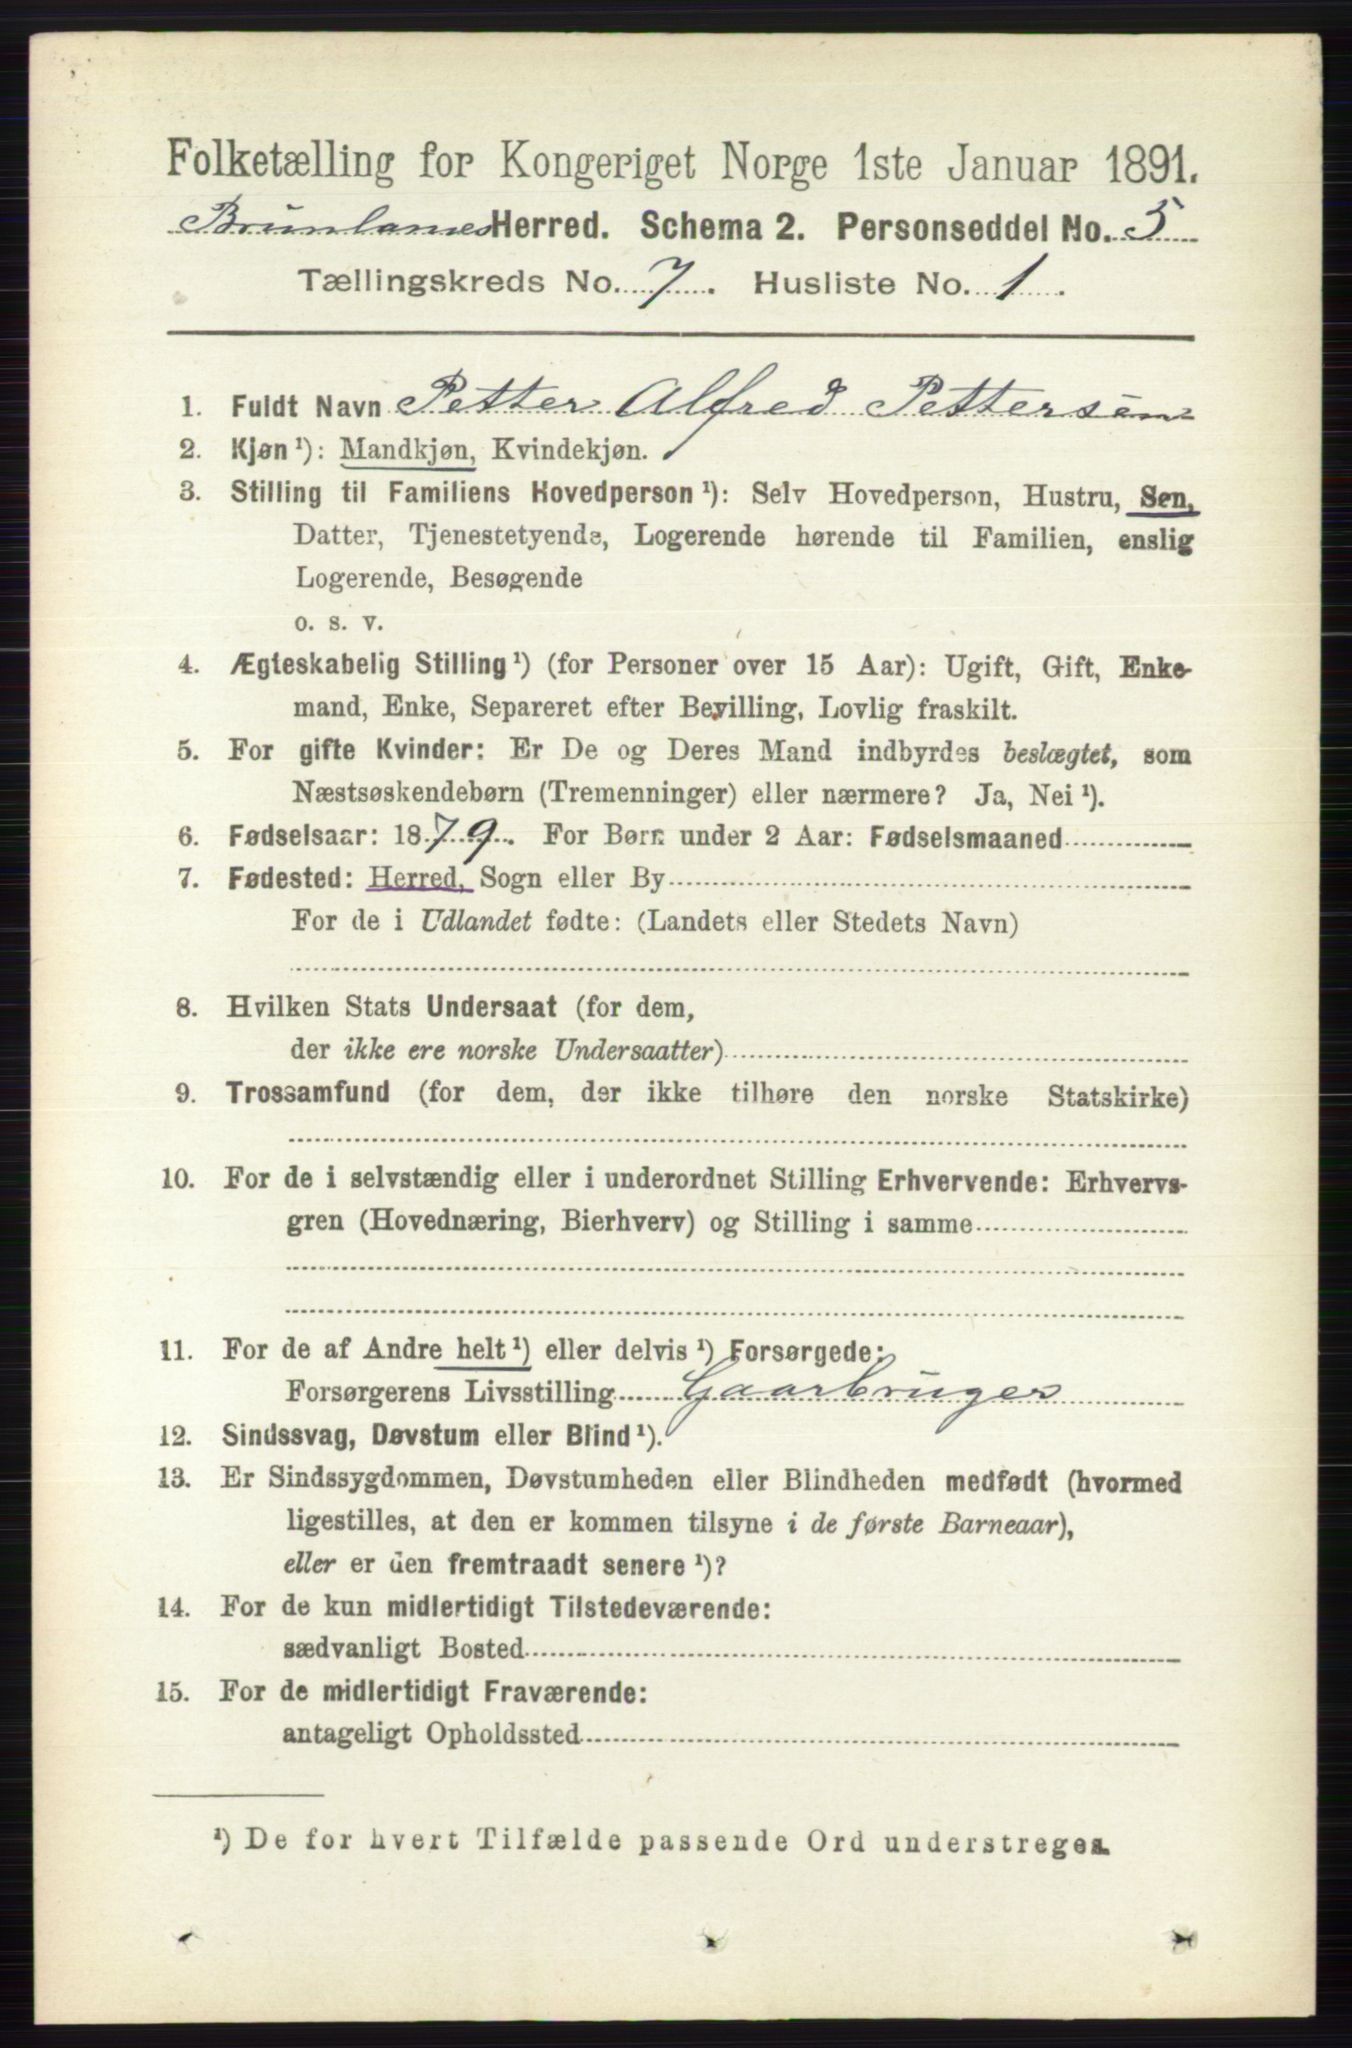 Folketælling for Kongeriget Norge 1ste Januar 1891.
Brunlanes Herred. Schema 2. Personseddel No. 5
Tællingskreds No. 7. Husliste No. 1.
1. Fuldt Navn Petter Alfred Pettersen
2. Kjøn ¹): Mandkjøn, Kvindekjøn.
3. Stilling til Familiens Hovedperson ¹): Selv Hovedperson, Hustru, Søn,
Datter, Tjenestetyende, Logerende hørende til Familien, enslig
Logerende, Besøgende
o. s. v.
4. Ægteskabelig Stilling ¹) (for Personer over 15 Aar): Ugift, Gift, Enke-
mand, Enke, Separeret efter Bevilling, Lovlig fraskilt.
5. For gifte Kvinder: Er De og Deres Mand indbyrdes beslægtet, som
Næstsøskendebørn (Tremenninger) eller nærmere? Ja, Nei ¹).
6. Fødselsaar: 1879. For Børn under 2 Aar: Fødselsmaaned
7. Fødested: Herred, Sogn eller By
For de i Udlandet fødte: (Landets eller Stedets Navn)
8. Hvilken Stats Undersaat (for dem,
der ikke ere norske Undersaatter)
9. Trossamfund (for dem, der ikke tilhøre den norske Statskirke)
10. For de i selvstændig eller i underordnet Stilling Erhvervende: Erhvervs-
gren (Hovednæring, Bierhverv) og Stilling i samme
11. For de af Andre helt ¹) eller delvis ¹) Forsørgede:
Forsørgerens Livsstilling Gaarbruger
12. Sindssvag, Døvstum eller Blind ¹).
13. Er Sindssygdommen, Døvstumheden eller Blindheden medfødt (hvormed
ligestilles, at den er kommen tilsyne i de første Barneaar),
eller er den fremtraadt senere ¹)?
14. For de kun midlertidigt Tilstedeværende:
sædvanligt Bosted
15. For de midlertidigt Fraværende:
antageligt Opholdssted
¹) De for hvert Tilfælde passende Ord understreges.